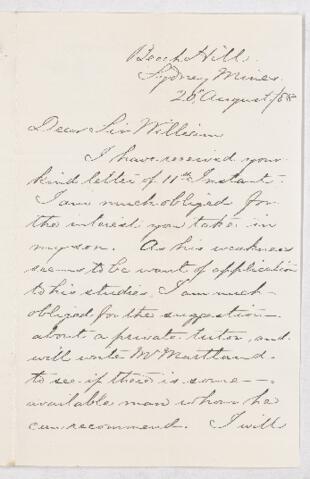 Beech Hill
Sydney Mines.
20 August/88
Dear Sir William
I have received your
kind letter of 11th Instant.
I am much obliged for
the interest you take in
my son. As his weakness
seems to be want of application
to his studies, I am much
obliged for the suggestion
about a private tutor, and
will write Mr Maitland
to see if there is some —
available man whom he
can recommend. I will